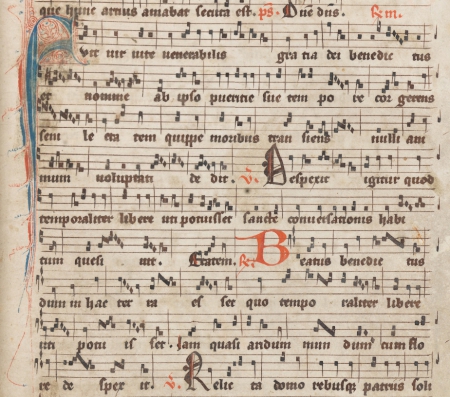 que hunc artius amabat secuta est. ps. Dne dns. R. m.
Fuit vir vite venerabilis gra tia dei benedic tus
et nomine ab ipso pueritie sue tem po re cor gerens
seni le eta tem quippe moribus tran siens nulli ani
mum voluptati de dit. V. Despexit igitur quod
temporaliter libere uti potuisset sancte conversationis habi
tum quesi vit. Etatem. R. Beatus benedic tus
dum in hac ter ra es set quo tempo raliter libere
uti potu is set. Iam quasi aridum mun dum cum flo
re de spex it. V. Relic ta domo rebusque patris soli